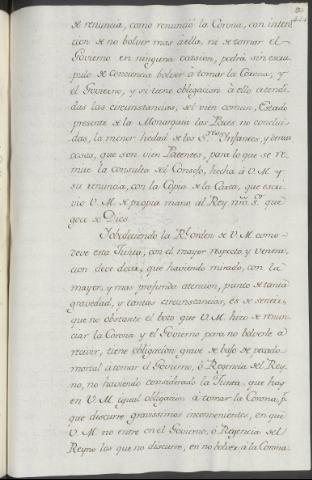 de renuncia, como renunció la Corona, con inten
cion de no bolver mas á ella, ni de tomar el
Govierno en ninguna ocasion, podrá sin escru
pulo de conciencia bolver á tomar la Corona, y
el Govierno, y si tiene obligacion á ello atendi
das las circunstancias, del vien comun, Estado
presente de la Monarquia las Paces no conclui
das, la menor hedad de los S.res Infantes, y demas
cosas, que son vien Patentes, para lo que se re
mite la consulta del Consejo, hecha á V. M. y
su renuncia, con la Copia de la Carta, que escri
vio V. M. de propia mano al Rey nro. S.or que
goce de Dios.
Y obedeciendo la R.l orden de V. M. como
deve esta Junta, con el mayor respecto y venera
cion deve decir, que haviendo mirado, con la
mayor, y mas profunda atencion, punto de tanta
gravedad, y tantas circunstancias, es de sentir,
que no obstante el boto que V. M. hizo de renun
ciar la Corona y el Govierno para no bolverle á
recivir, tiene obligacion grave de bajo de pecado
mortal á tomar el Govierno, ó Regencia del Rey
no, no haviendo considerado la Junta, que hay
en V. M. igual obligacion á tomar la Corona, p.r
que discurre gravissimos inconvenientes, en que
V. M. no entre en el Govierno, ó Regencia del
Reyno los que no discurre, en no bolver á la Corona